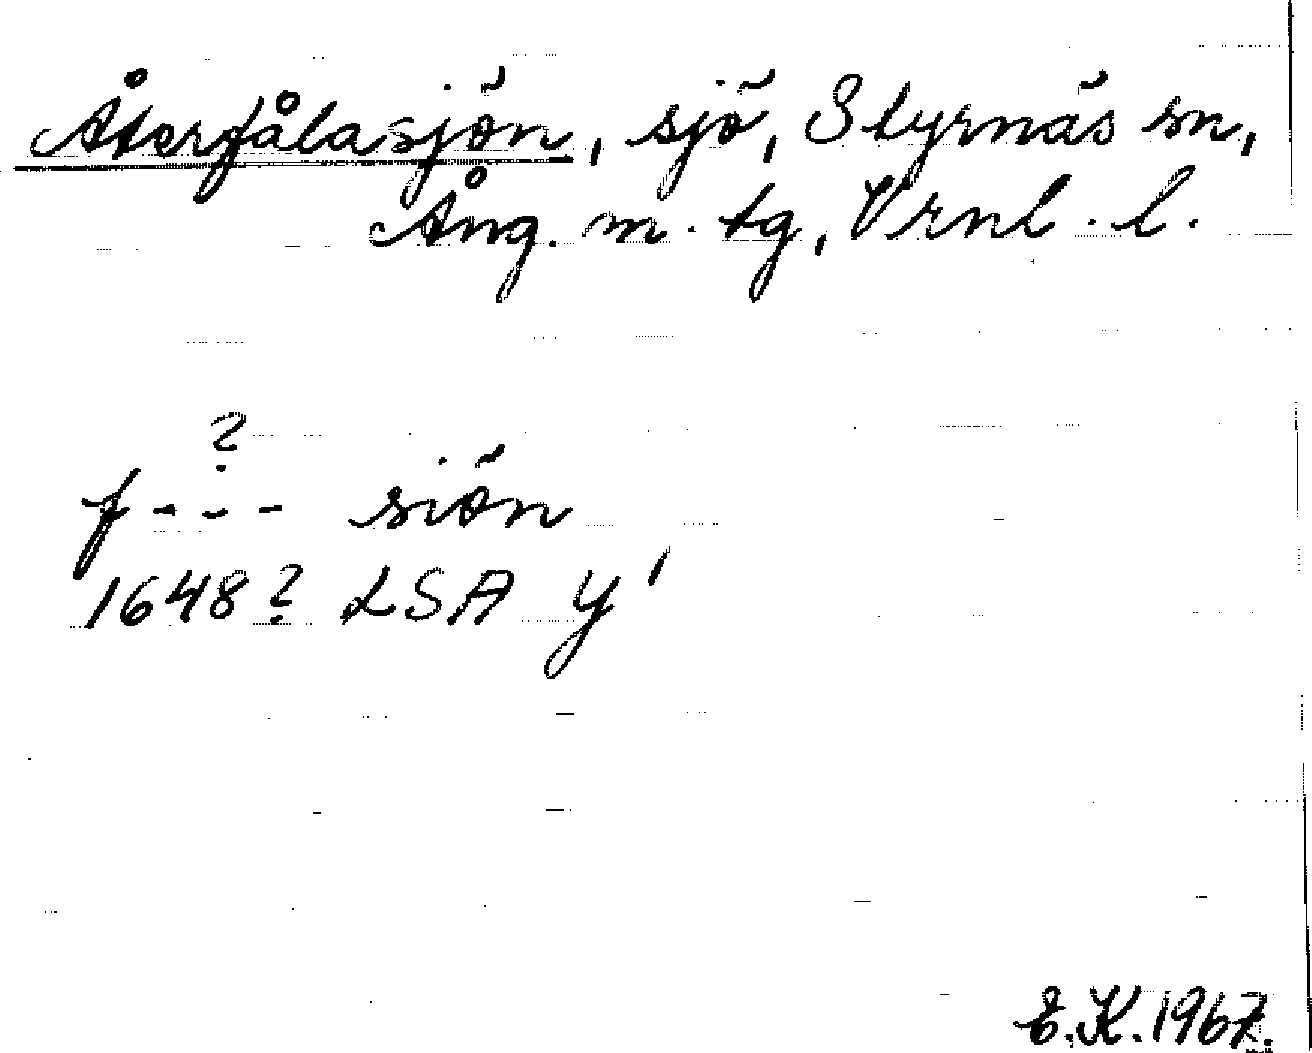 Återfålasjön, sjö, Styrnäs sn,
Ång. m. tg, Vrnl. l.
?
f - - - siön
1648? LSA y¹
E.K. 1967.